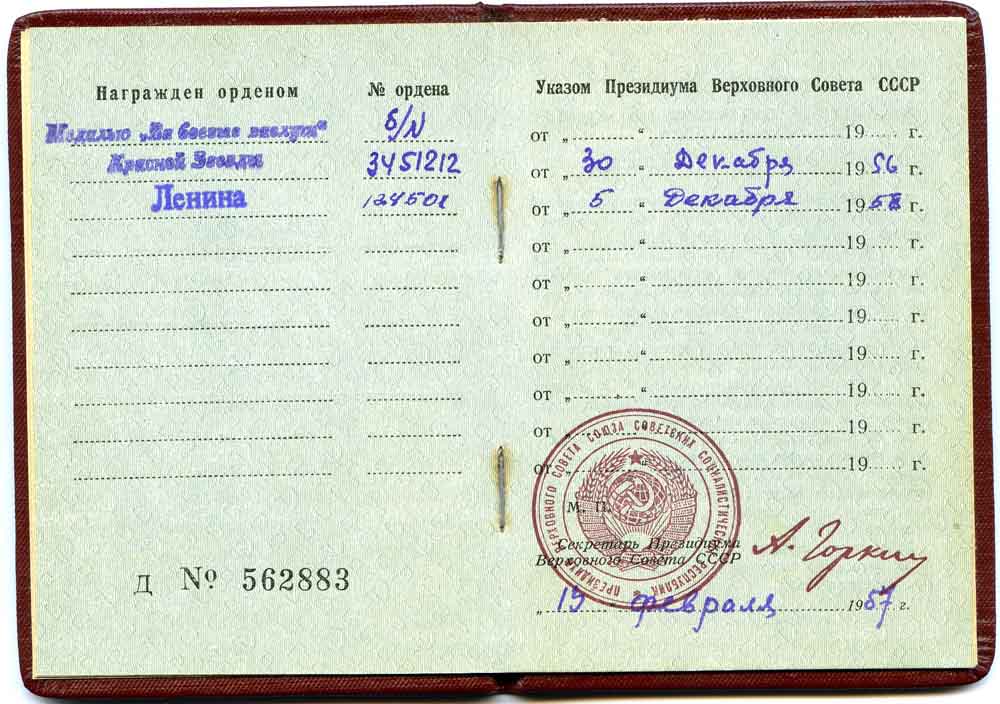 Награжден орденом
№ ордена
Медалью „За боевые заслуги“
б/N
Красной Звезды
3451212
Ленина
Д № 562883
Указом Президиума Верховного Совета СССР
от „ “ 19 г.
от „ 30 “ Декабря 1956 г.
от „ 5 “ Декабря 195 г.
от „ “ 19 г.
от „ “ 19 г.
от „ “ 19 г.
от „ “ 19 г.
от „ “ 19 г.
от „ “ 19 г.
от „ 19 г.
от „ 19 г.
ПРЕЗИДИУМ ВЕРХОВНОГО СОВЕТА СОЮЗА СОВЕТСКИХ СОЦИАЛИСТИЧЕСКИХ РЕСПУБЛИК
М. П.
Секретарь Президиума
Верховного Совета СССР
А. Горкин
„ 19 “ февраля 1957 г.